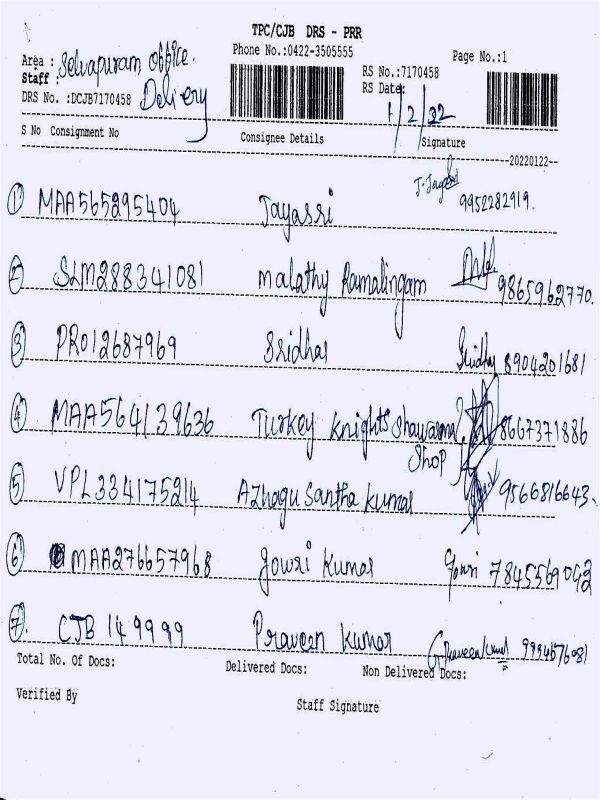 TPC/CJB DRS - PRR
Phone No.:0422-3505555
Page No.:1
Area : Selvapuram office.
Staff : Delivery
DRS No. :DCJB7170458
RS No.:7170458
RS Date: 1/2/22
S No Consignment No Consignee Details Signature
20220122
1 MAA565295404 Jayassri J. Jayassri 9952282919.
2 SLM288341081 Malathy Ramalingam 9865962770.
3 PRO12687969 Sridhar Sridhar 8904201681
4 MAA564139636 Turkey Knights Shawarma Shop 8667371886
5 VPL334175214 Azhagu Santha Kumar 9566816643.
6 MAA276657968 Gowri Kumar Gowri 7845569042
7. CJB 149999 Praveen Kumar G. Praveen Kumar 9994576081
Total No. Of Docs: Delivered Docs: Non Delivered Docs:
Verified By
Staff Signature